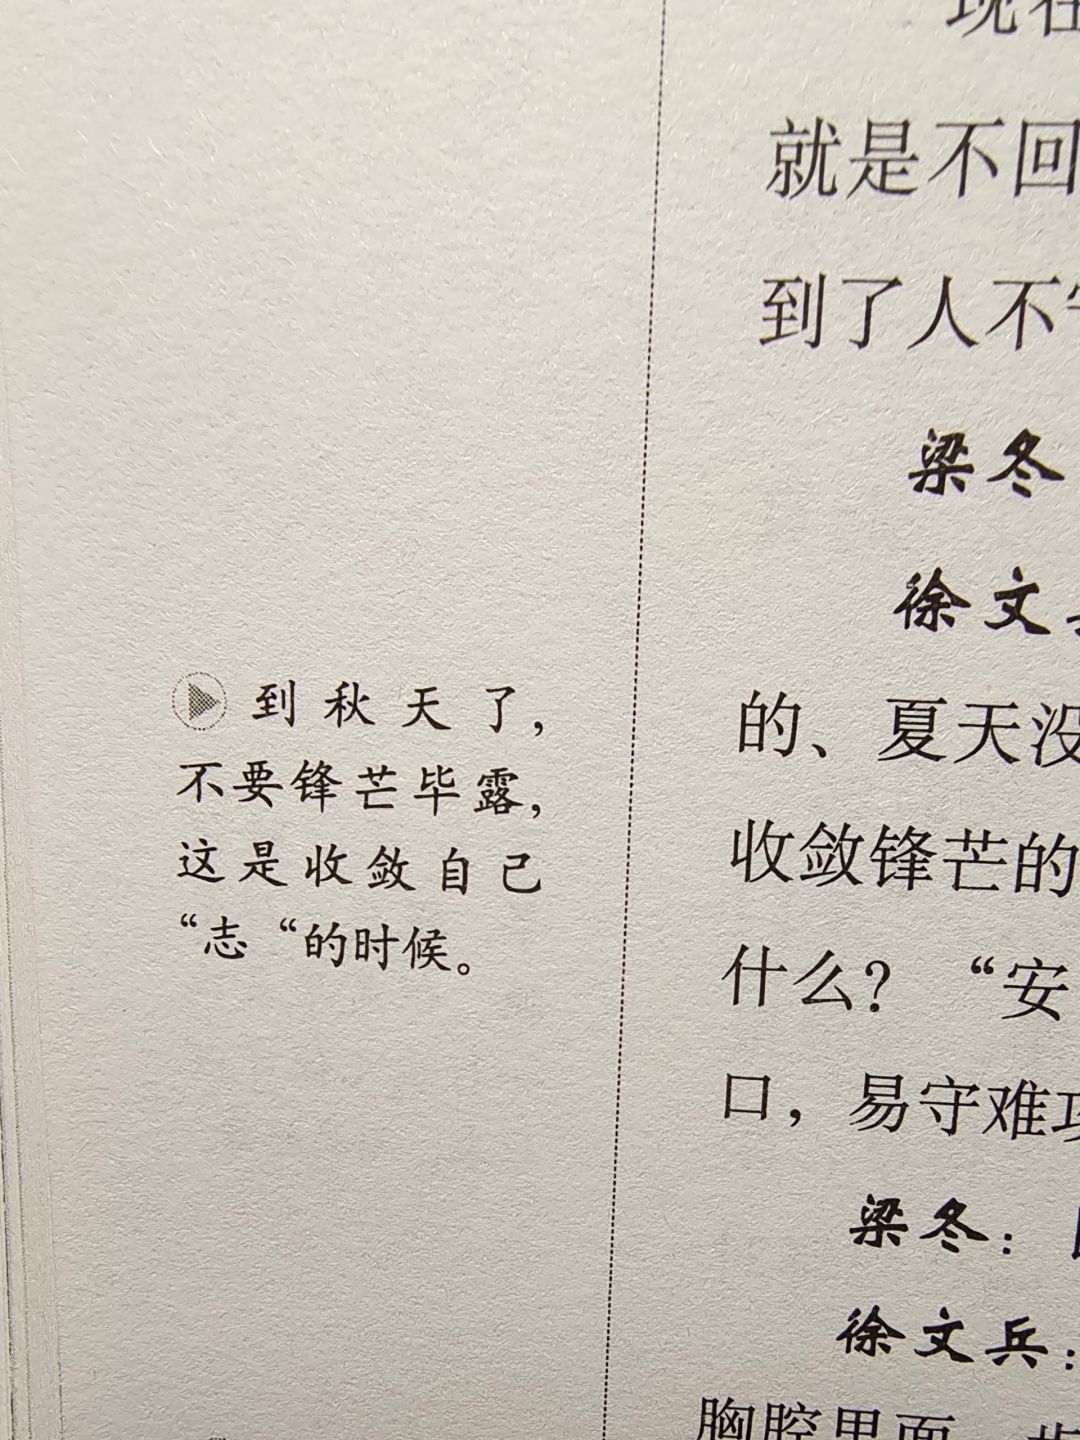 到秋天了，
不要锋芒毕露，
这是收敛自己
“志“的时候。
现在
就是不回
到了人不
梁冬
徐文
的、夏天没
收敛锋芒的
什么？ “安
口，易守难攻
梁冬：
徐文兵：
胸腔里面